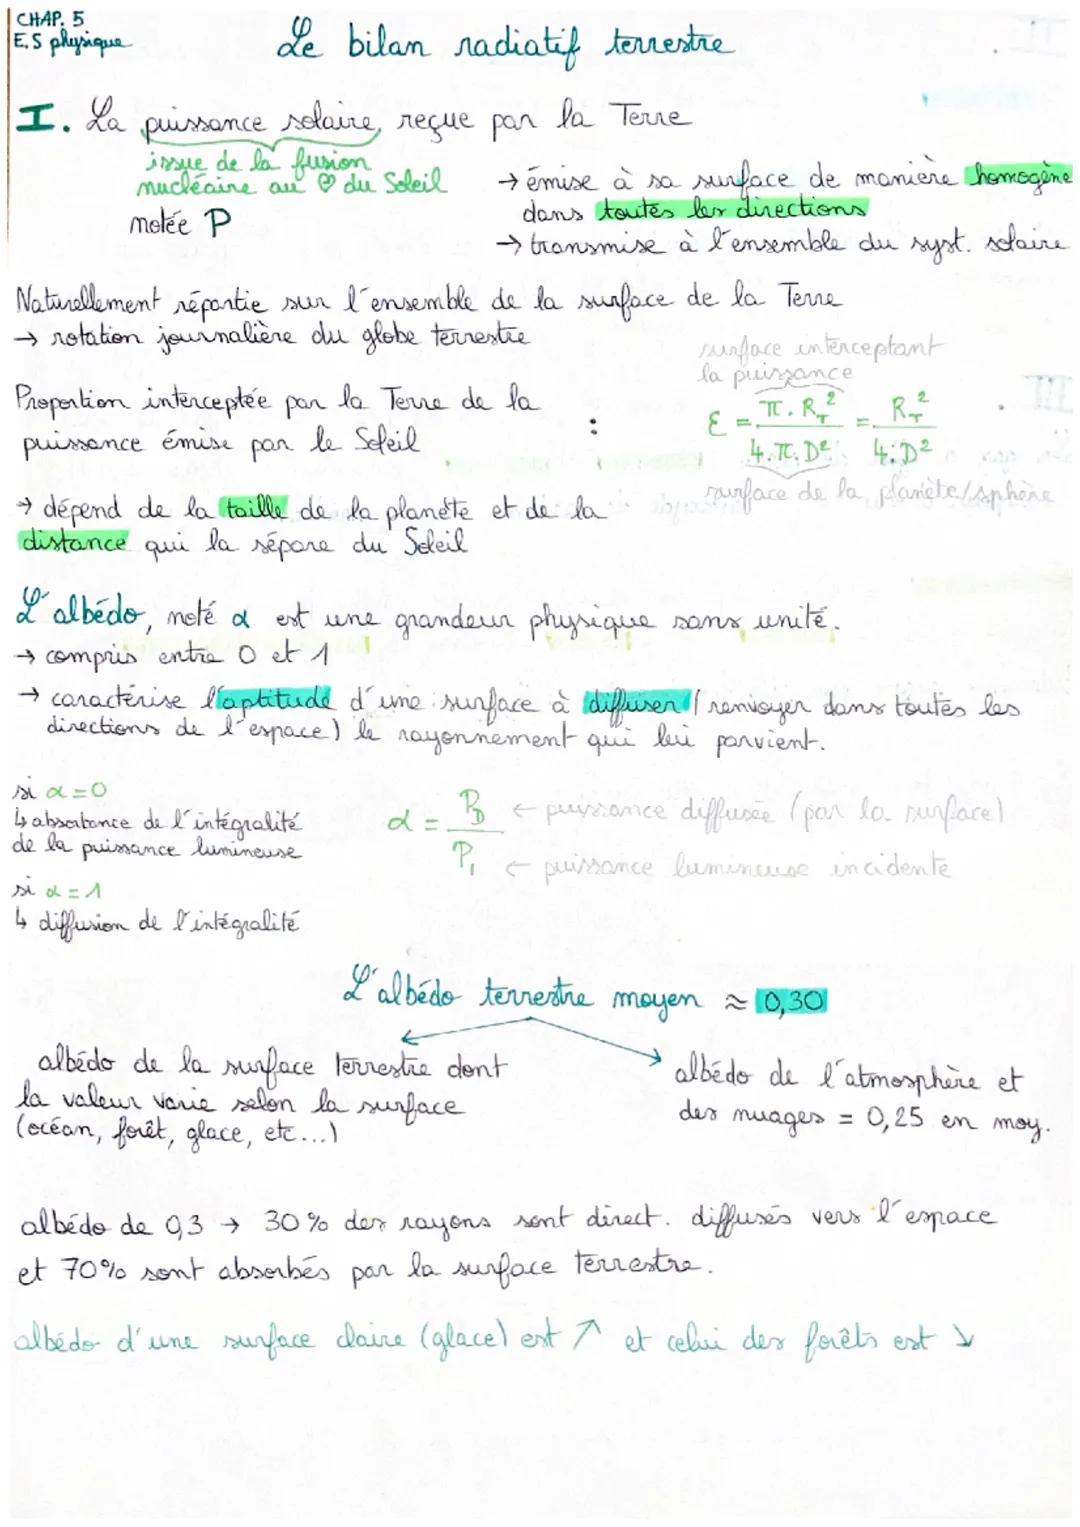 CHAP. 5
E.S physique
Le bilan radiatif terrestre
I. La puissance solaire, reçue par la Terre
issue de la fusion
nucléaire au ♡ du Soleil
notée P
→ émise à sa surface de manière homogène
dans toutes les directions
→ transmise à l'ensemble du syst. solaire
Naturellement répartie sur l'ensemble de la surface de la Terre
→ rotation journalière du globe terrestre
Proportion interceptée par la Terre de la
puissance émise par le Soleil :
surface interceptant
la puissance
ε = π.R_T² / 4.π.D² = R_T² / 4.D²
surface de la planète/sphère
→ dépend de la taille de la planète et de la
distance qui la sépare du Soleil
L'albédo, noté α est une grandeur physique sans unité.
→ compris entre 0 et 1
→ caractérise l'aptitude d'une surface à diffuser (renvoyer dans toutes les
directions de l'espace) le rayonnement qui lui parvient.
si α = 0
↳ absorbance de l'intégralité
de la puissance lumineuse
si α = 1
↳ diffusion de l'intégralité
α = P_D / P_i
← puissance diffusée (par la surface)
← puissance lumineuse incidente
L'albédo terrestre moyen ≈ 0,30
albédo de la surface terrestre dont
la valeur varie selon la surface
(océan, forêt, glace, etc...)
albédo de l'atmosphère et
des nuages = 0,25 en moy.
albédo de 0,3 → 30% des rayons sont direct. diffusés vers l'espace
et 70% sont absorbés par la surface terrestre.
albédo d'une surface claire (glace) est ↗ et celui des forêts est ↘